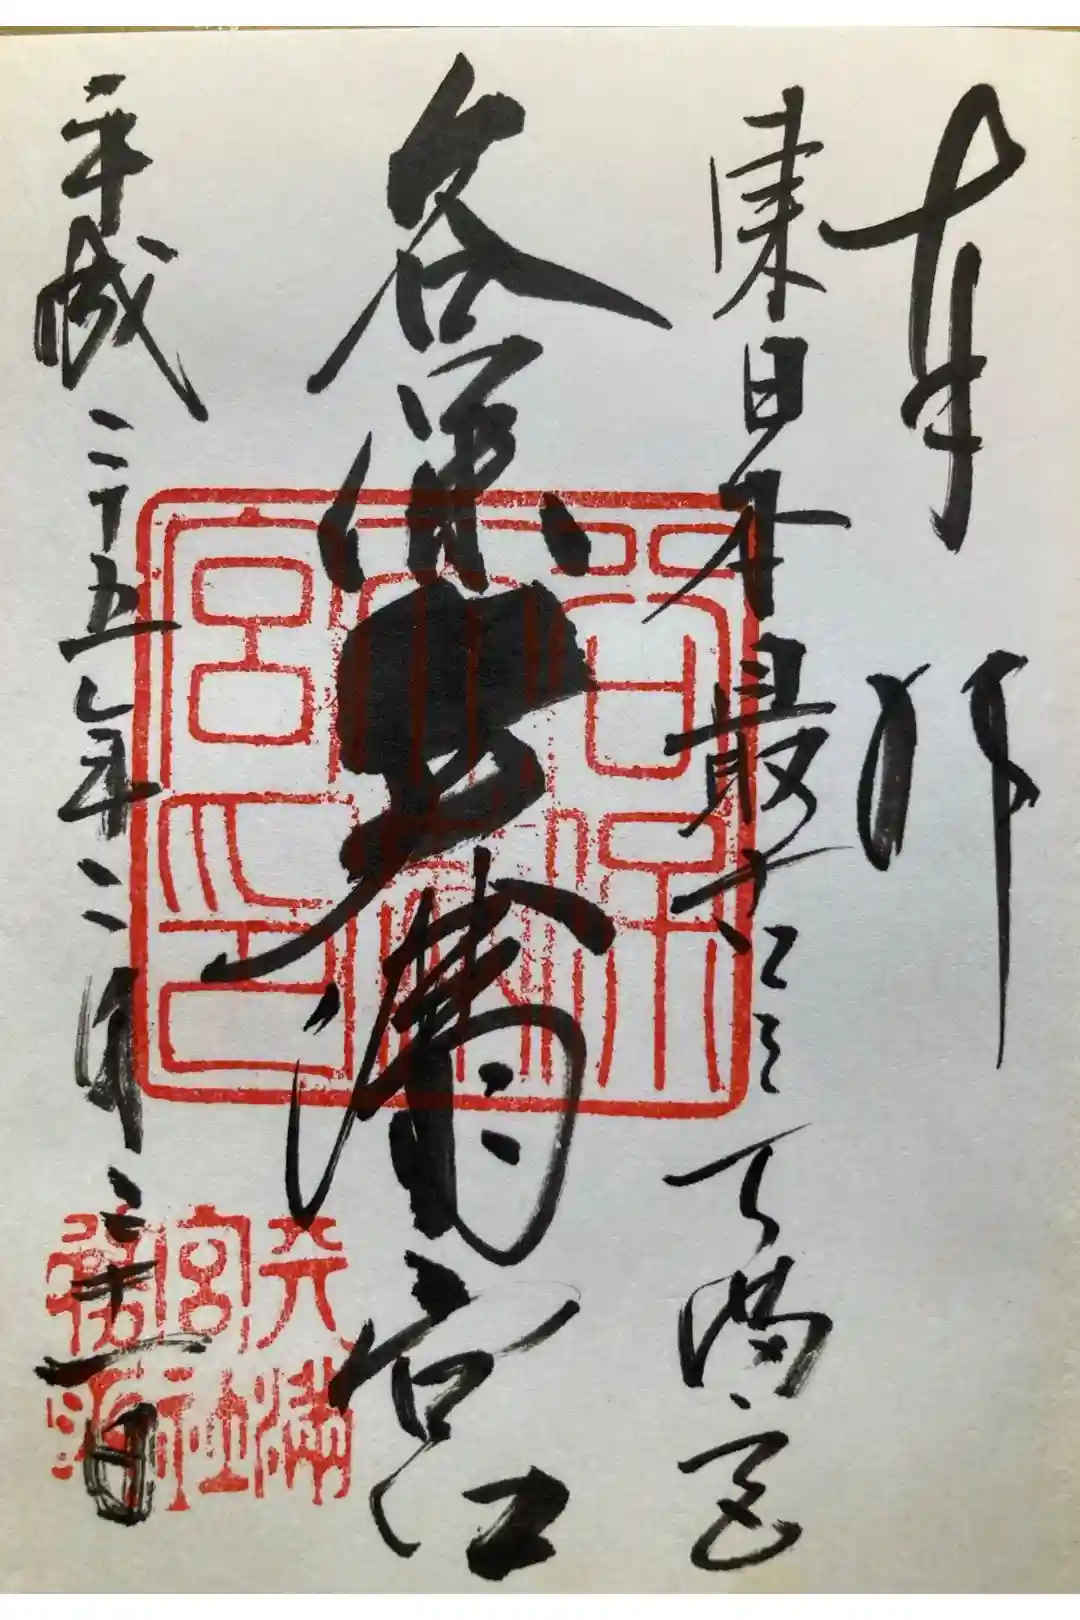 奉拝
東日本最古之天満宮
谷保天満宮
平成二十五年二月二十一日
谷保天満宮之印
天満宮社務所